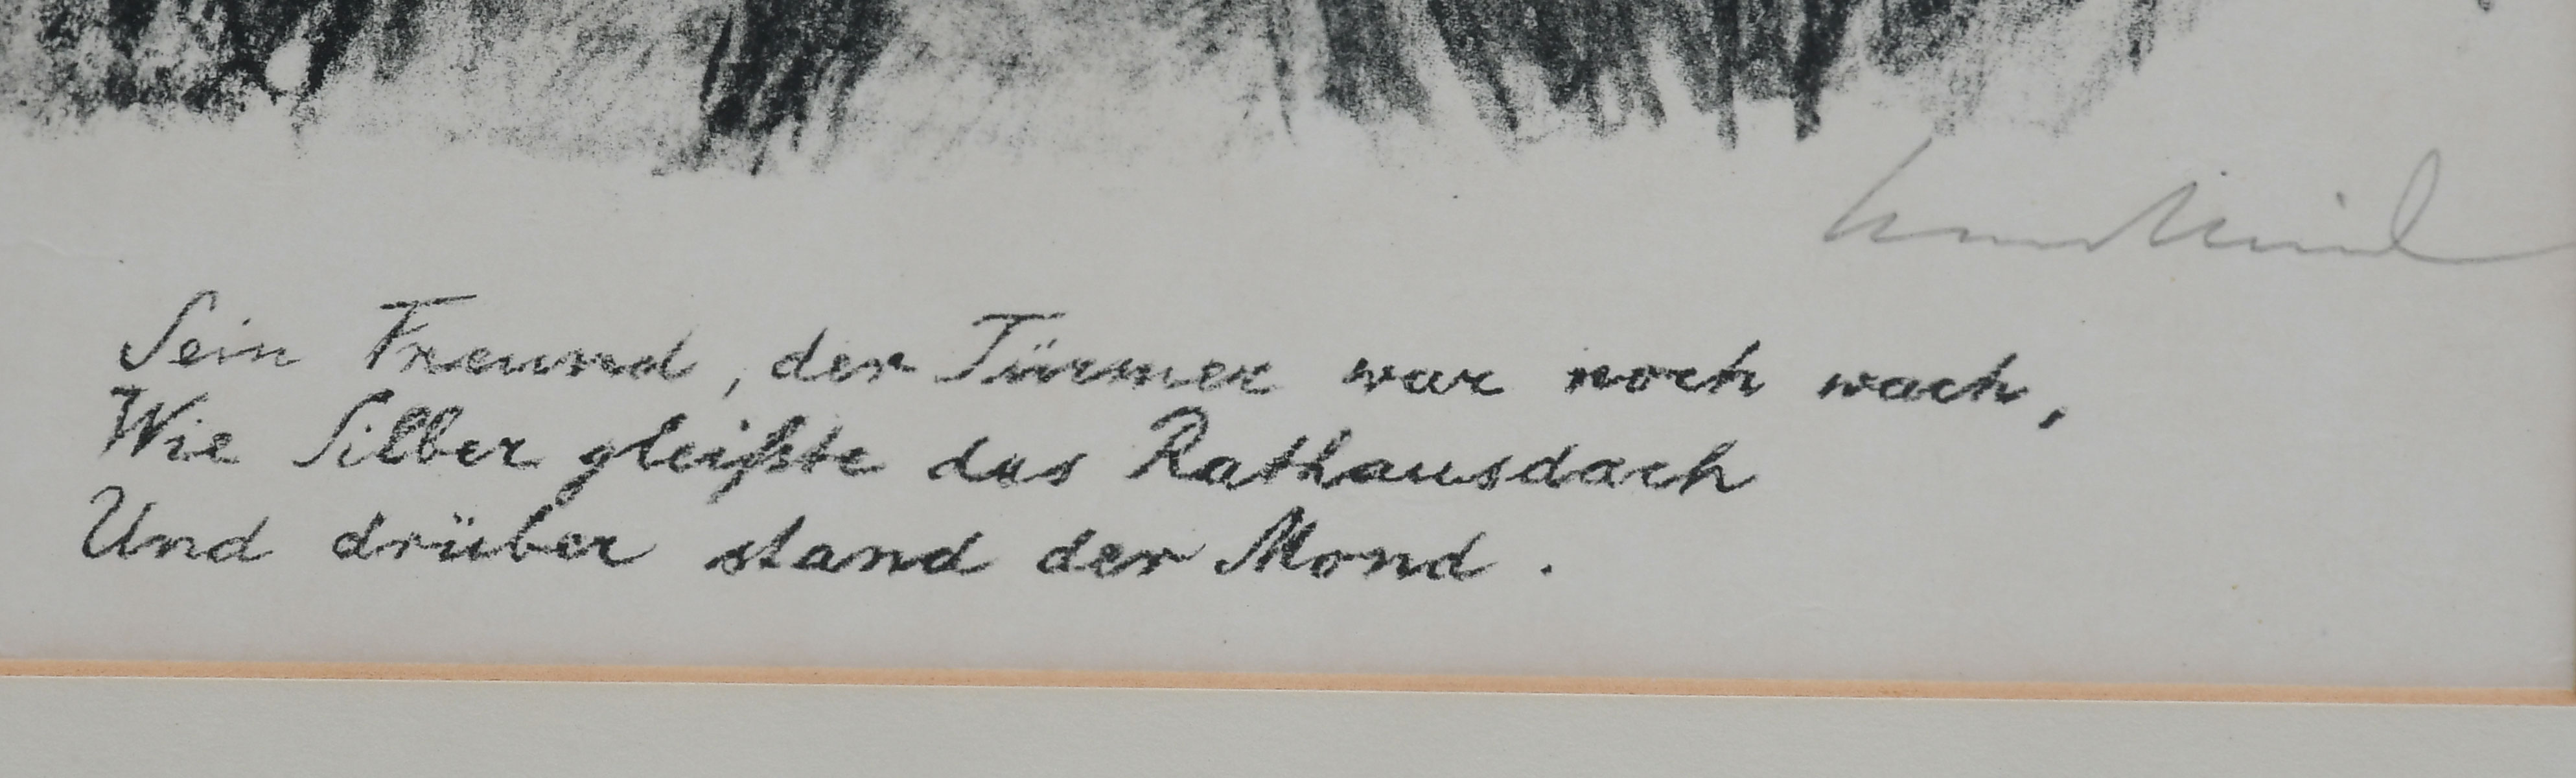 Sein Freund, der Türmer war noch wach,
Wie Silber gleißte das Rathausdach
Und drüber stand der Mond.